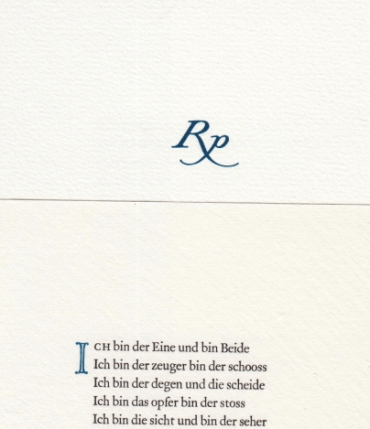 Rp
ICH bin der Eine und bin Beide
Ich bin der zeuger bin der schooss
Ich bin der degen und die scheide
Ich bin das opfer bin der stoss
Ich bin die sicht und bin der seher